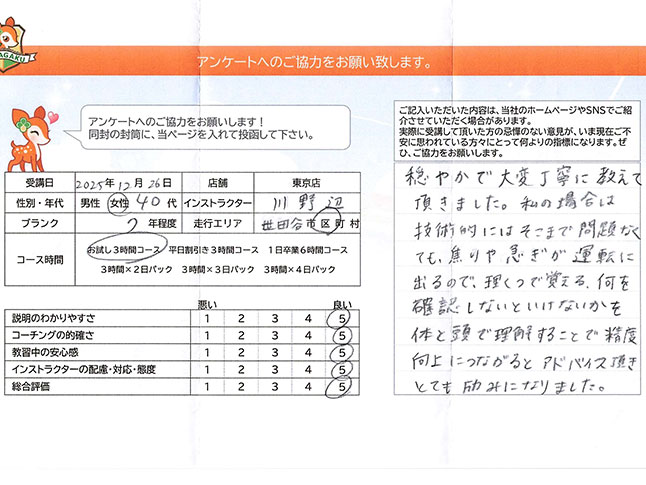 AGAKU
アンケートへのご協力をお願い致します。
アンケートへのご協力をお願いします！
同封の封筒に、当ページを入れて投函して下さい。
受講日 2025年12月26日 店舗 東京店
性別・年代 男性 女性 40代 インストラクター 川野辺
ブランク 7年程度 走行エリア 世田谷市区町村
コース時間 お試し3時間コース 平日割引き3時間コース 1日卒業6時間コース
3時間×2日パック 3時間×3日パック 3時間×4日パック
悪い 良い
説明のわかりやすさ 1 2 3 4 5
コーチングの的確さ 1 2 3 4 5
教習中の安心感 1 2 3 4 5
インストラクターの配慮・対応・態度 1 2 3 4 5
総合評価 1 2 3 4 5
ご記入いただいた内容は、当社のホームページやSNSでご紹
介させていただく場合があります。
実際に受講して頂いた方の忌憚のない意見が、いま現在ご不
安に思われている方々にとって何よりの指標になります。ぜ
ひ、ご協力をお願いします。
穏やかで大変丁寧に教えて
頂きました。私の場合は
技術的にはそこまで問題なく
ても、焦りや急ぎが運転に
出るので、理くつで覚える、何を
確認しないといけないかを
体と頭で理解することで精度
向上につながるとアドバイス頂き
とても励みになりました。